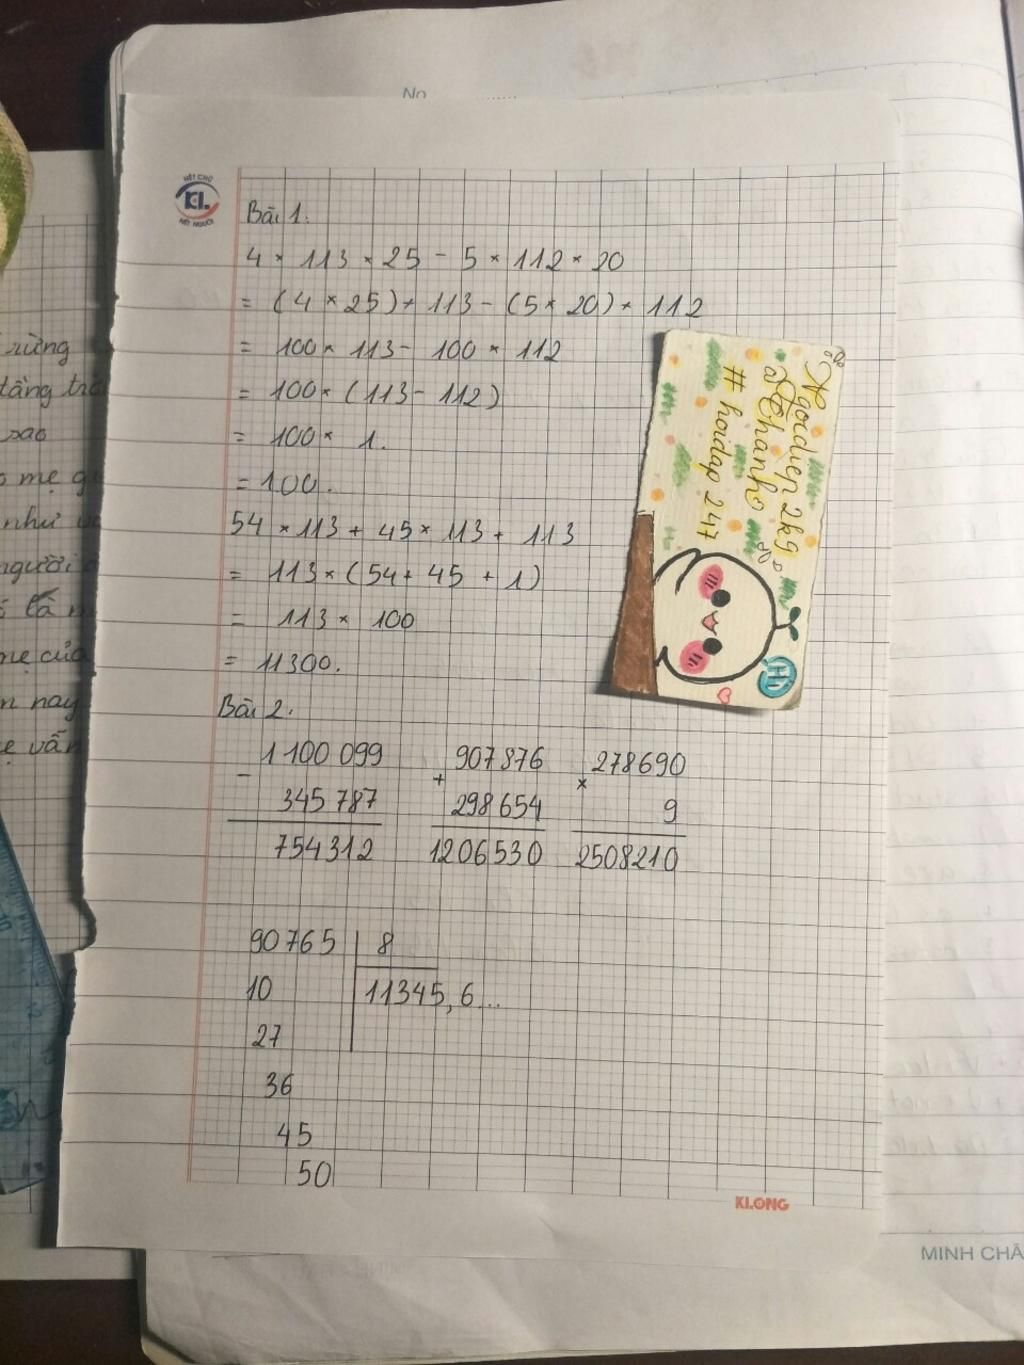 No
NÉT CHỮ
KL
NẾT NGƯỜI
Bài 1.
4 × 113 × 25 - 5 × 112 × 20
= (4 × 25) × 113 - (5 × 20) × 112
= 100 × 113 - 100 × 112
= 100 × (113 - 112)
= 100 × 1.
= 100.
54 × 113 + 45 × 113 + 113
= 113 × (54 + 45 + 1)
= 113 × 100
= 11300.
Bài 2.
1 100 099
-
345 787
754312
907876
+
298654
1206530
278690
×
9
2508210
90765 8
10 11345,6...
27
36
45
50
Ngocdiep2k9
Thanh
# hoidap 247
Hi
KLONG
rừng
sao
mẹ
như
người
mẹ của
nay
vẫn
MINH CHÂ